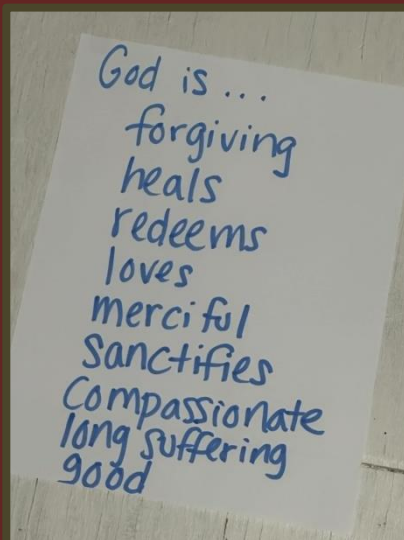 God is...
forgiving
heals
redeems
loves
merciful
Sanctifies
Compassionate
long suffering
good